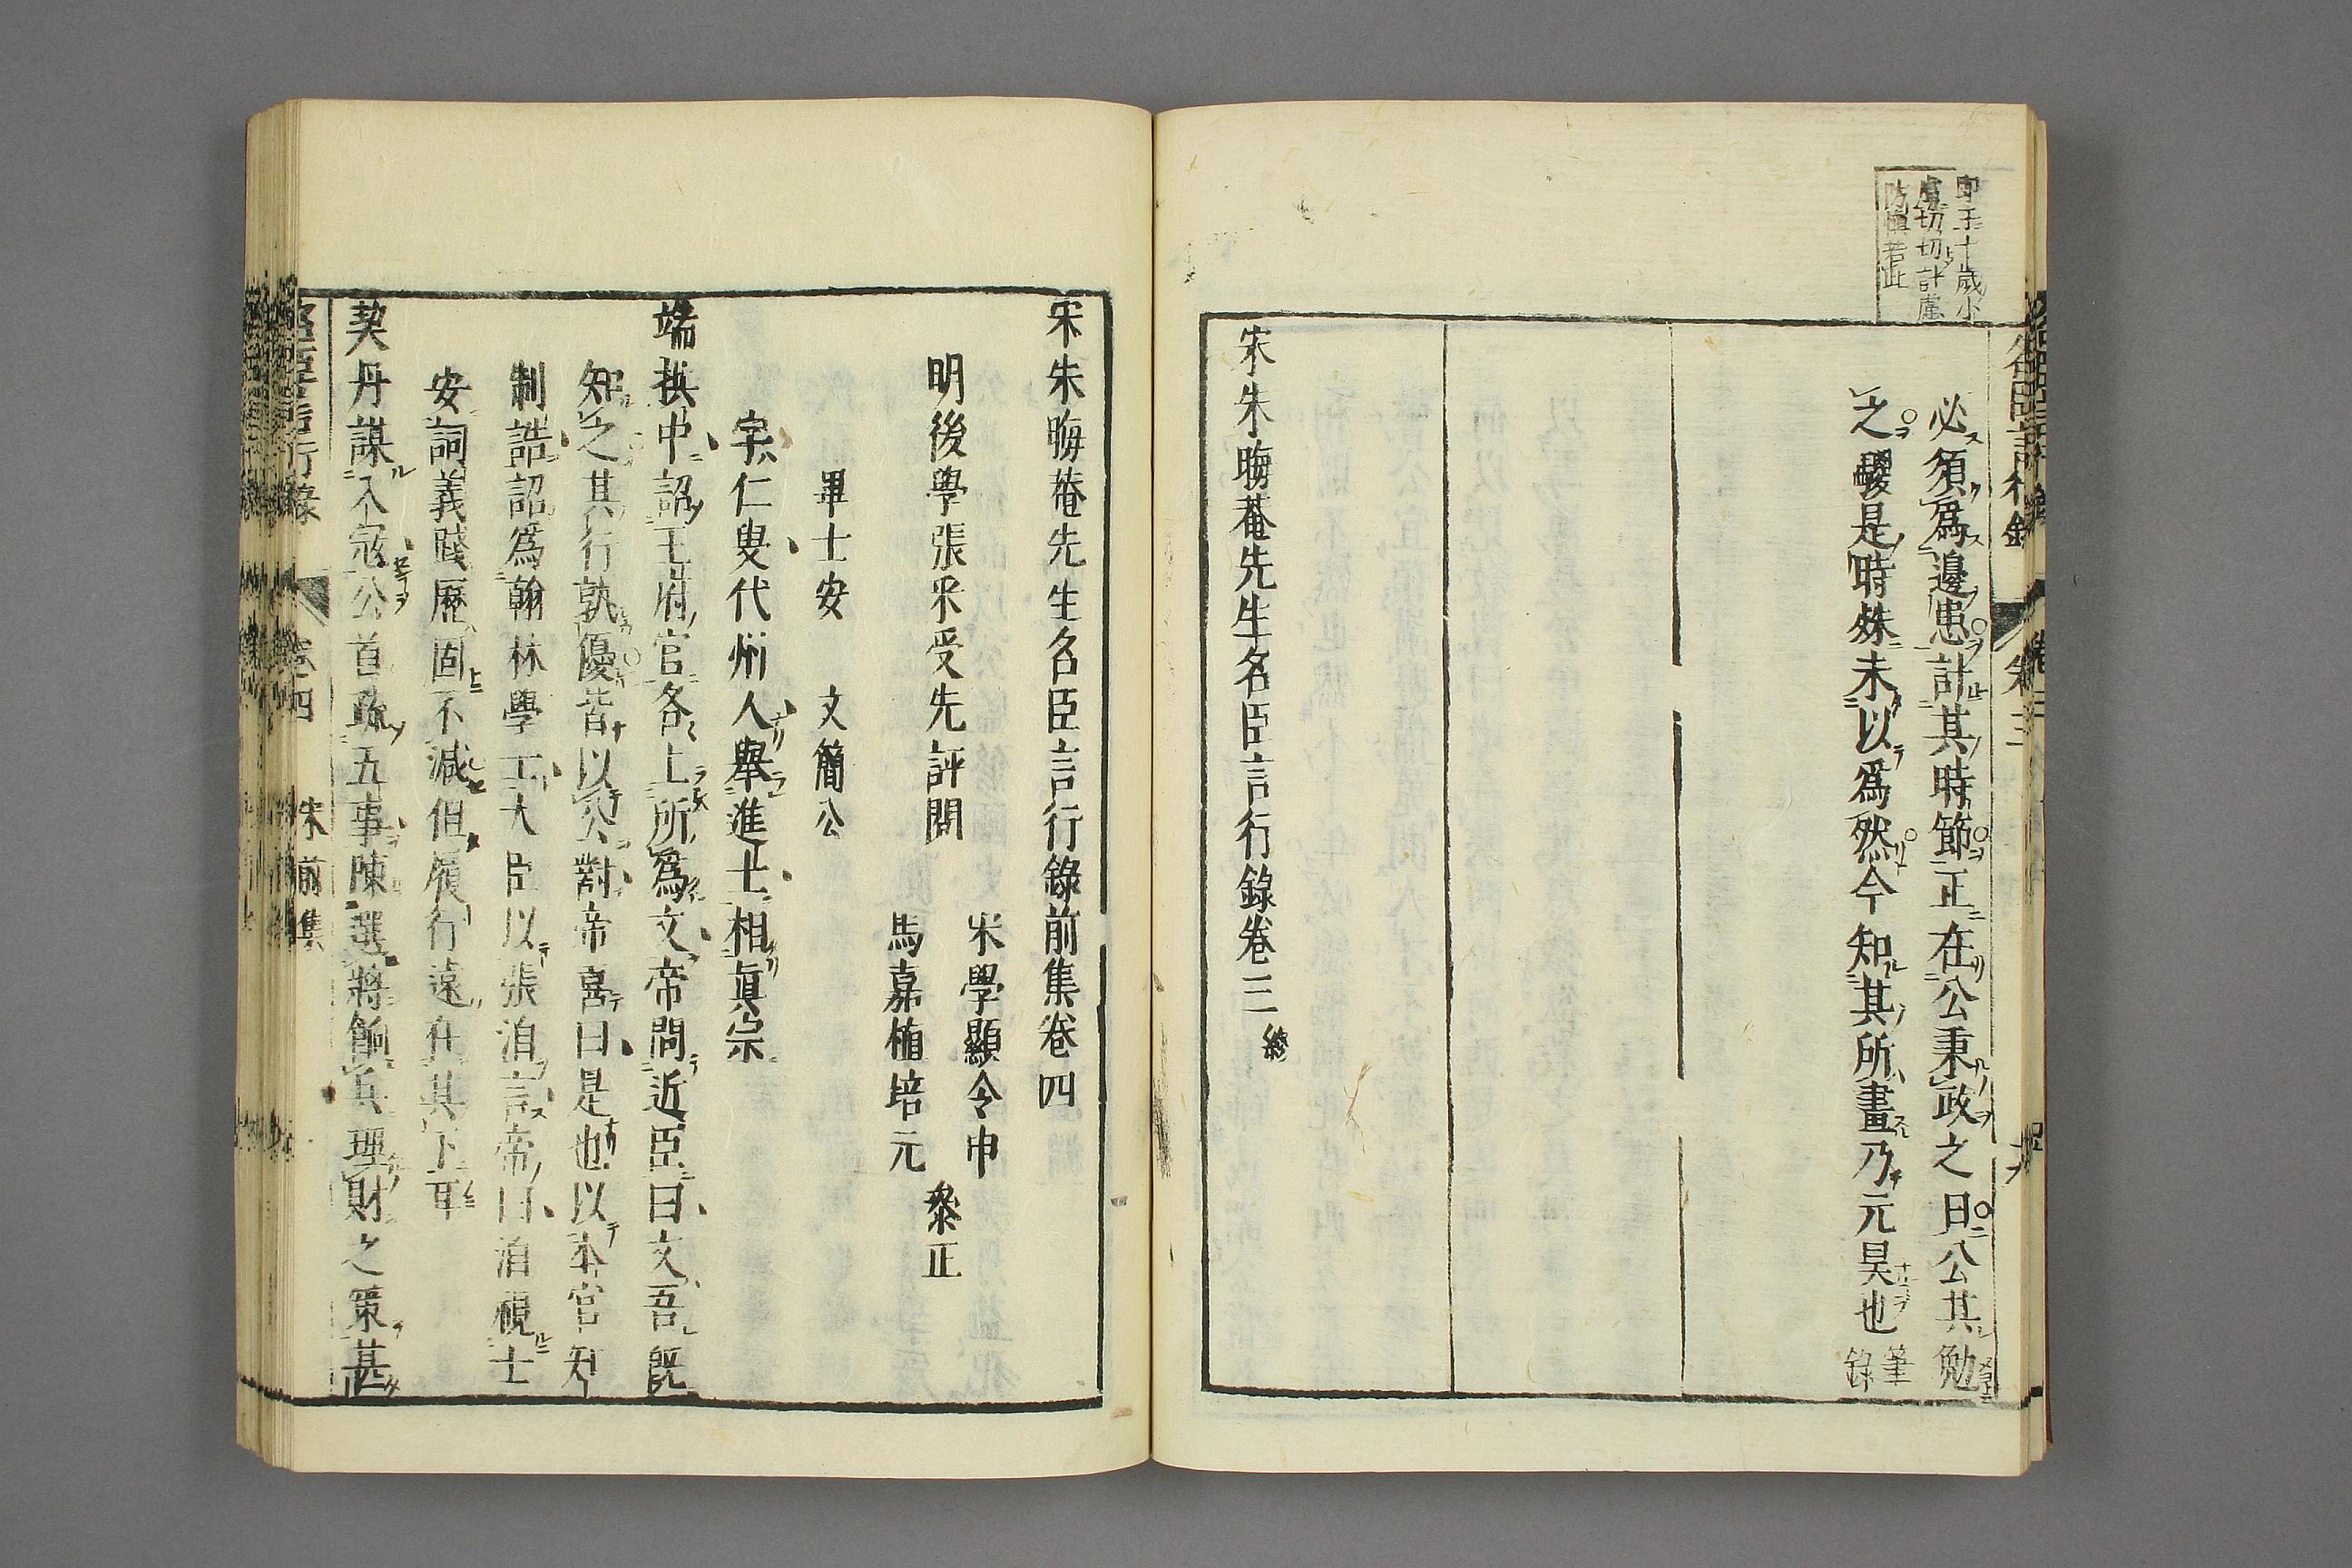 即于十歲小
處切切計慮
防慎若此
必須爲邊患計其時節正在公秉政之日公其勉
之鑁是時殊未以爲然今知其所畫乃元昊也 筆
錄
宋朱晦菴先生名臣言行錄卷三 終
宋朱晦菴先生名臣言行錄前集卷四
宋學顯令申
明後學張采受先評閱
馬嘉植培元
參正
畢士安 文簡公
字仁叟代州人舉進士相眞宗
端拱中詔王府官各上所爲文帝問近臣曰文吾旣
知之其行孰優皆以公對帝喜曰是也以本官知
制誥詔爲翰林學士大臣以張洎言帝曰洎視士
安詞義踐歷固不減但履行遠在其下耳
契丹謀入寇公首疏五事陳選將餉兵理財之策甚
名臣言行錄 卷四 宋前集